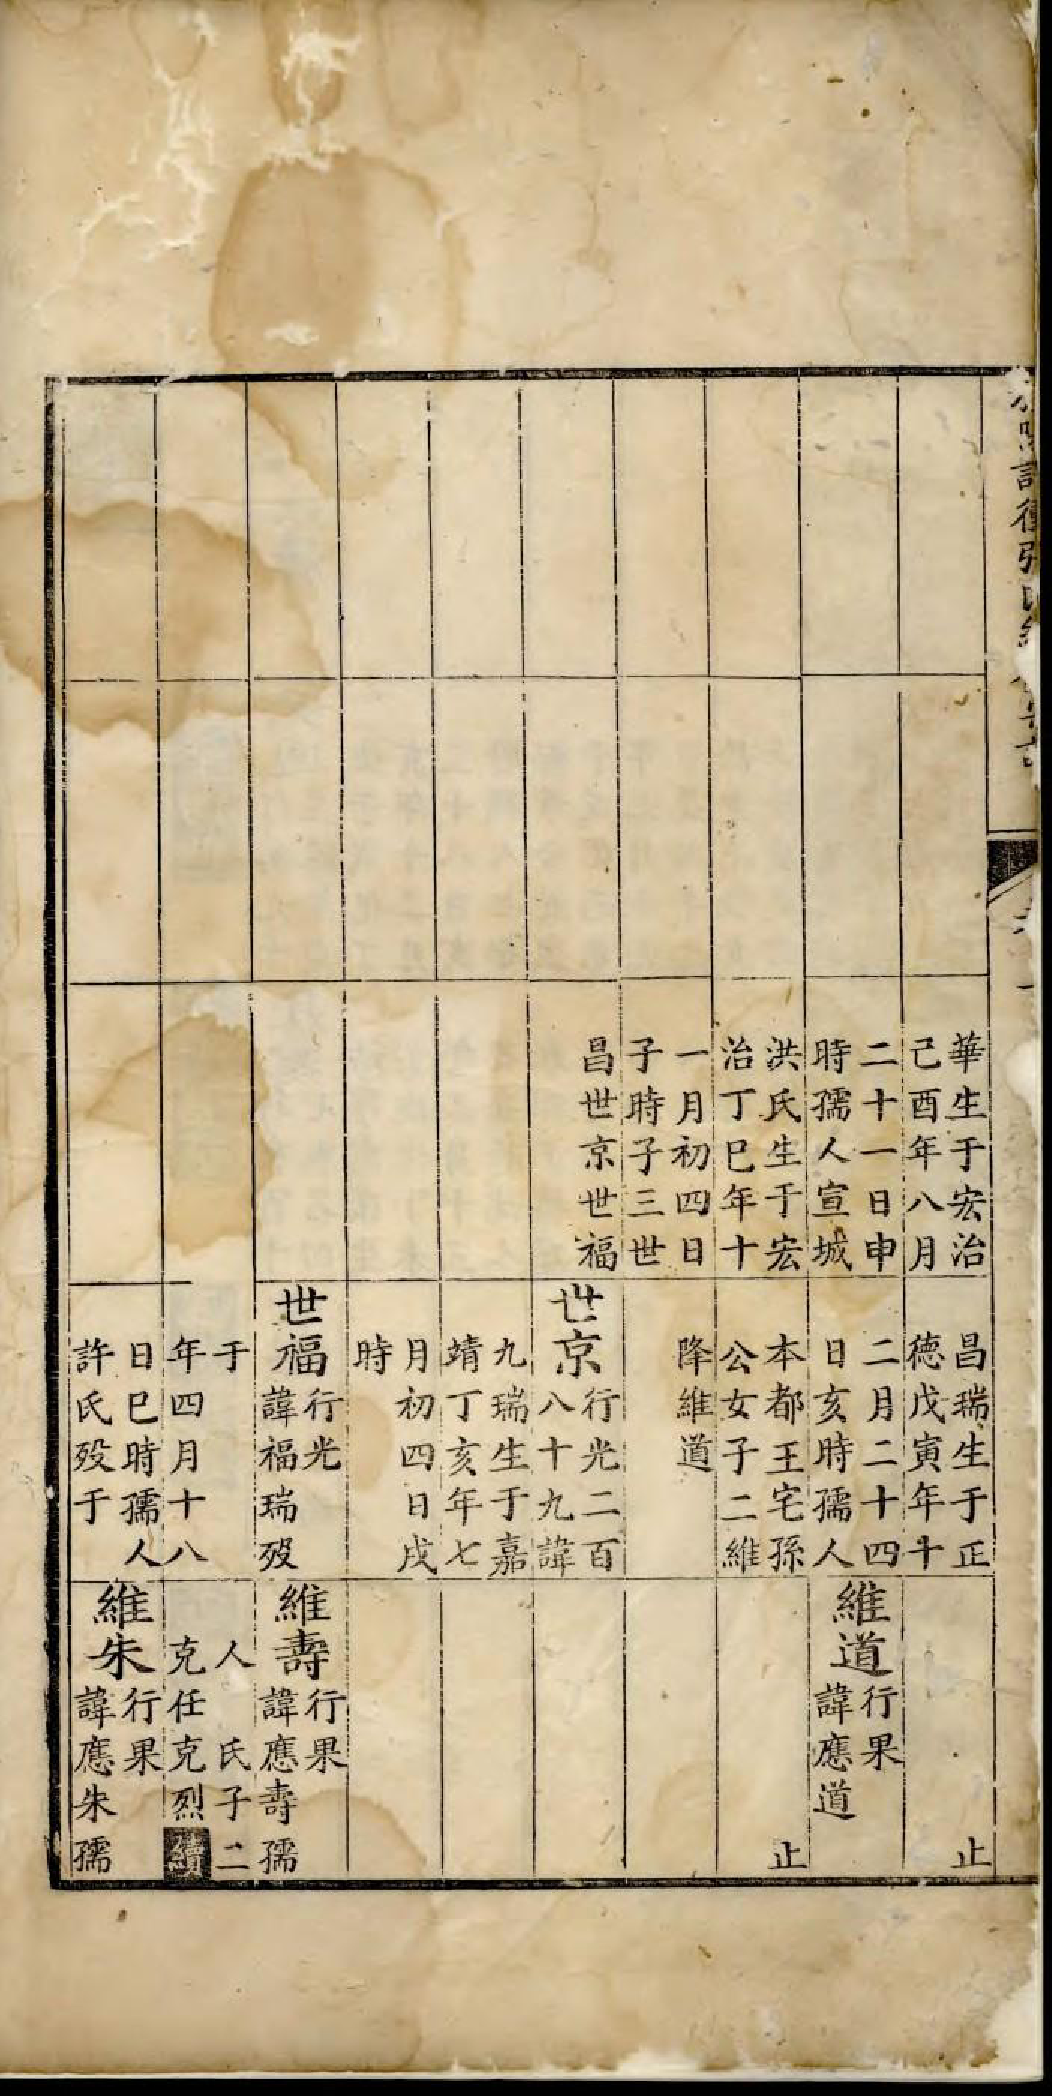 華生于宏治
己酉年八月
二十一日申
時孺人宣城
洪氏生于宏
治丁巳年十
一月初四日
子時子三世
昌世京世福
昌瑞生于正
德戊寅年十
二月二十四
日亥時孺人
本都王宅孫
公女子二維
降維道
世京
行光二百
八十九諱
九瑞生于嘉
靖丁亥年七
月初四日戌
時
世福
行光
諱福瑞歿
于
年四月十八
日巳時孺人
許氏歿于
止
維道
行果
諱應道
止
維壽
行果
諱應壽孺
人 氏子二
克任克烈績
維朱
行果
諱應朱孺